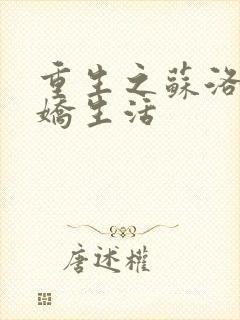 重生之蘇洛
嬌生活
唐述權